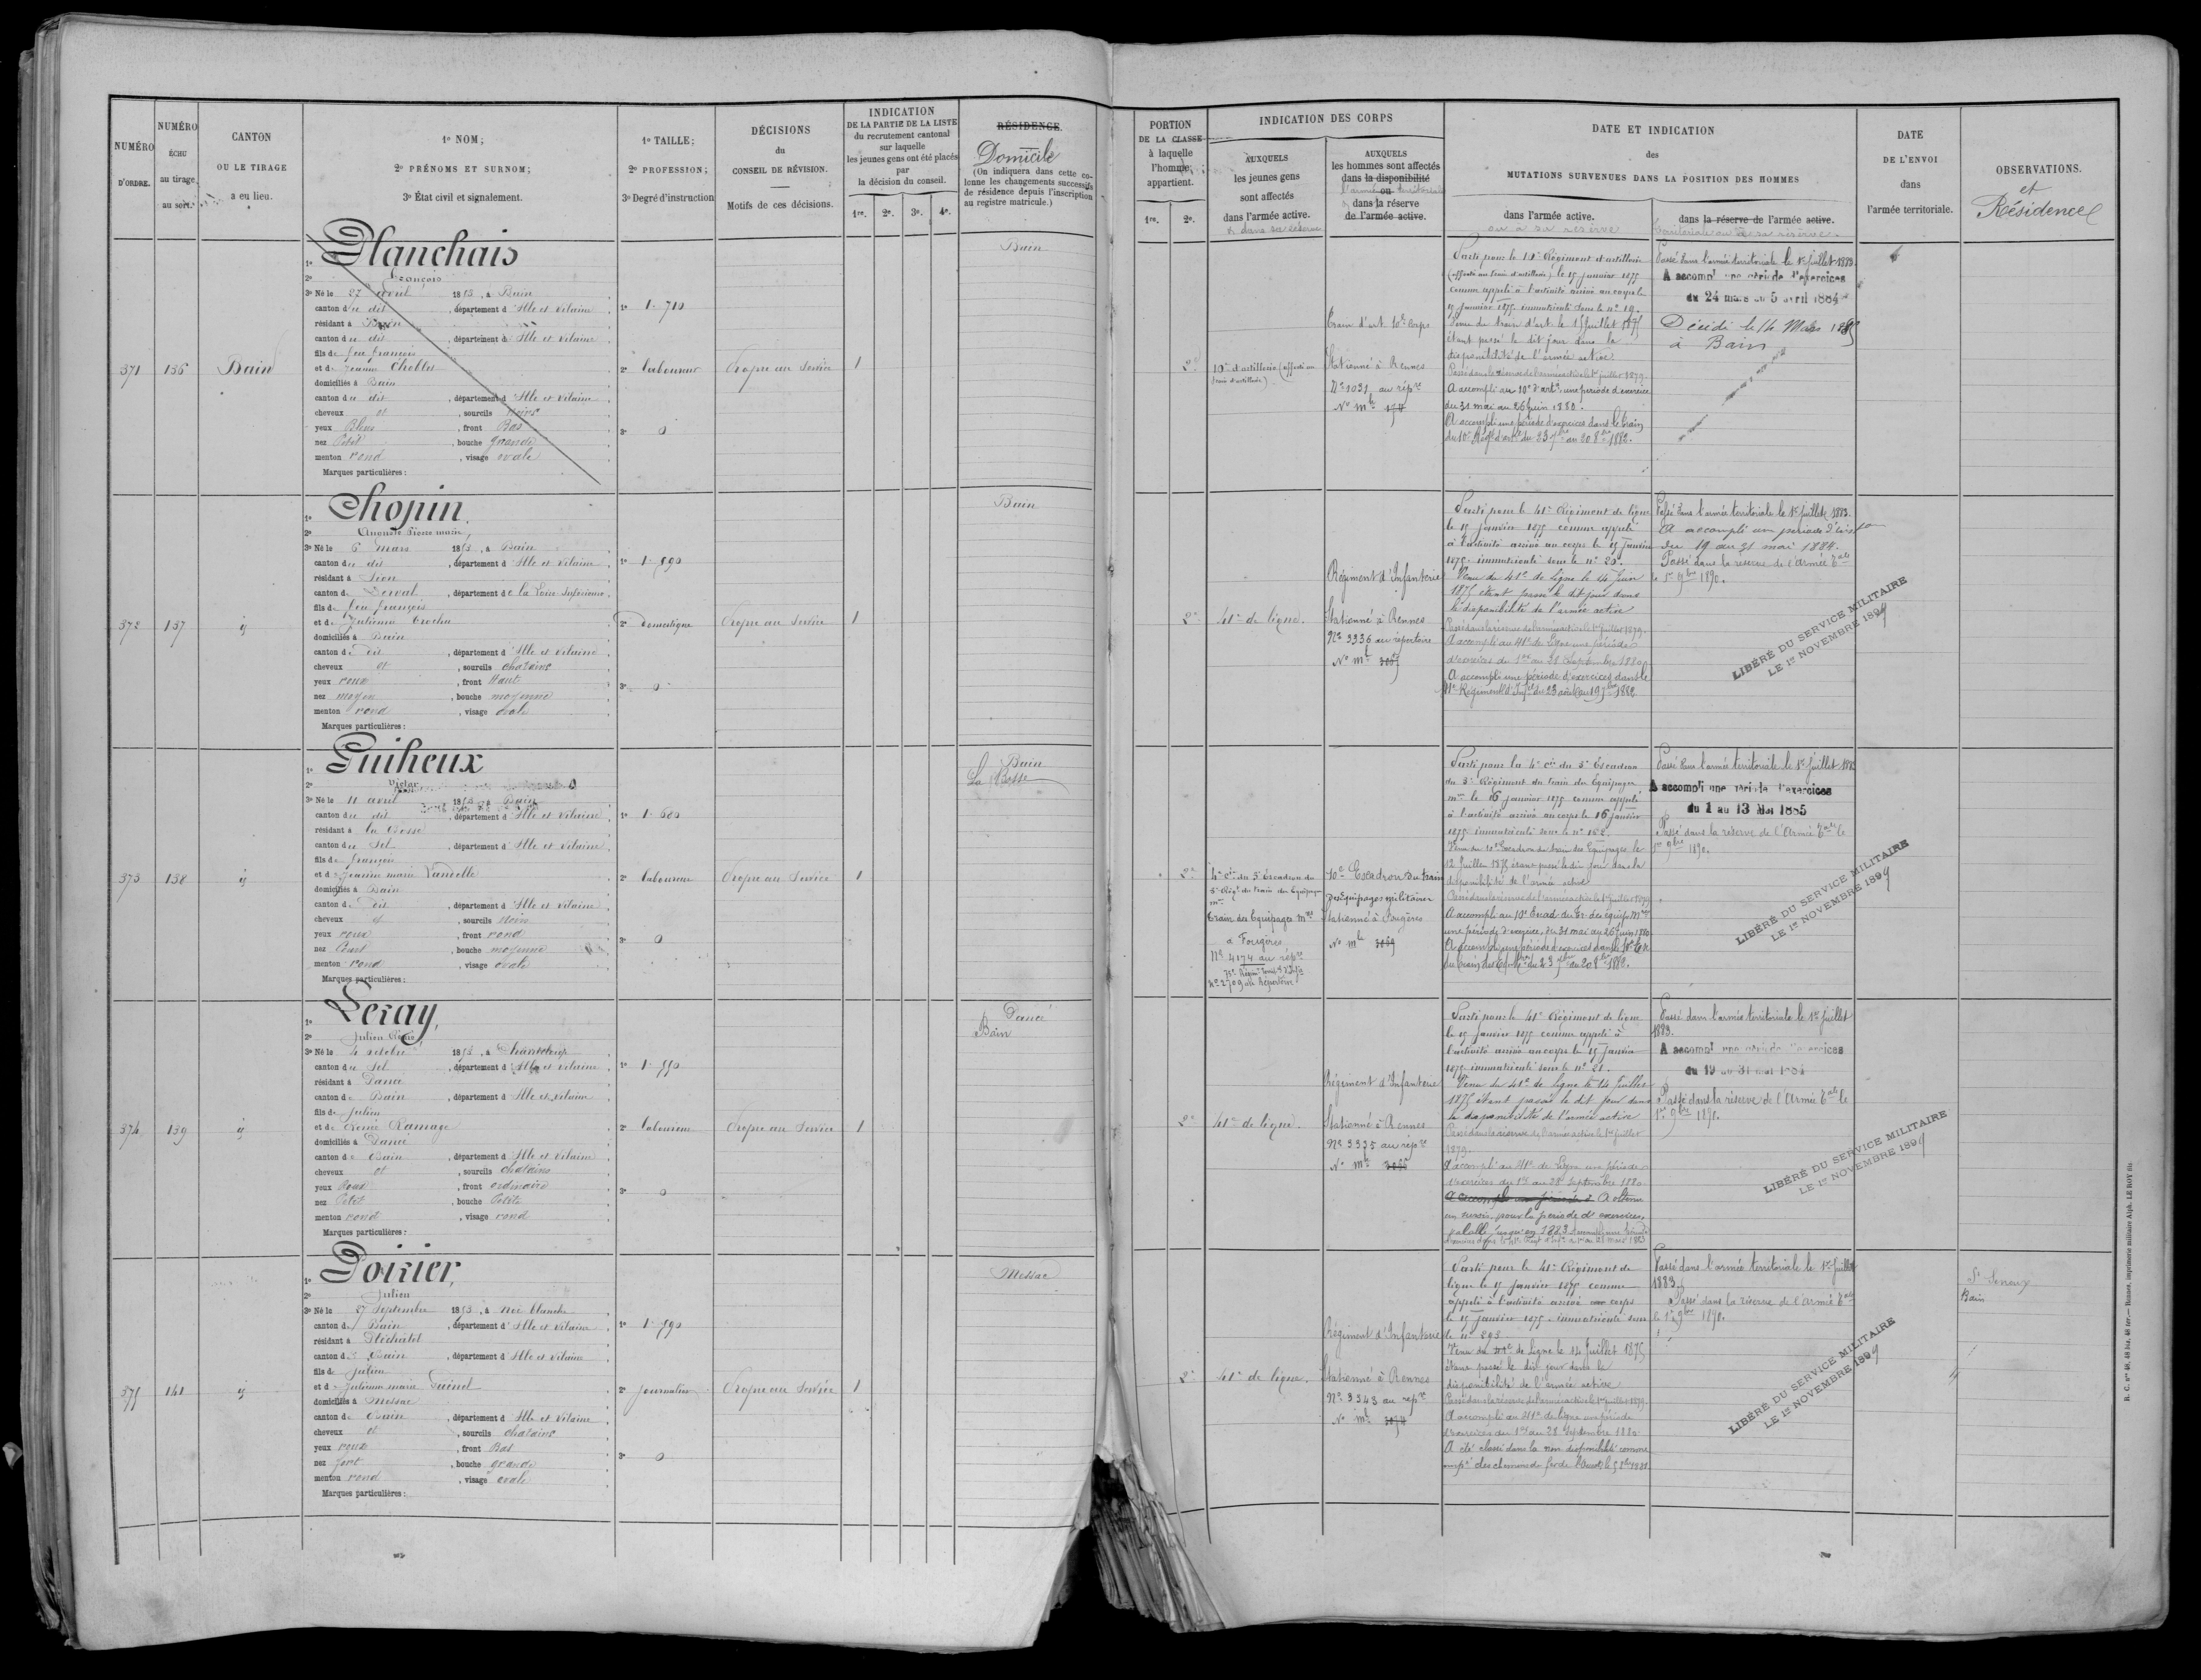 NUMÉRO
D'ORDRE.
NUMÉRO
ÉCHU
au tirage
au sort.
CANTON
OU LE TIRAGE
a eu lieu.
1º NOM;
2º PRÉNOMS ET SURNOM;
3º État civil et signalement.
1º TAILLE;
2º PROFESSION;
3º Degré d'instruction
DÉCISIONS
du
CONSEIL DE RÉVISION.
Motifs de ces décisions.
INDICATION
DE LA PARTIE DE LA LISTE
du recrutement cantonal
sur laquelle
les jeunes gens ont été placés
par
la décision du conseil.
1re. 2e. 3e. 4e.
RÉSIDENCE.
Domicile
(On indiquera dans cette co-
lonne les changements successifs
de résidence depuis l'inscription
au registre matricule.)
PORTION
DE LA CLASSE
à laquelle
l'homme
appartient.
1re. 2e.
INDICATION DES CORPS
AUXQUELS
les jeunes gens
sont affectés
dans l'armée active.
& dans sa réserve
AUXQUELS
les hommes sont affectés
dans la disponibilité
ou
l'armée territoriale
dans la réserve
de l'armée active.
DATE ET INDICATION
des
MUTATIONS SURVENUES DANS LA POSITION DES HOMMES
dans l'armée active.
ou a sa réserve
dans la réserve de l'armée active.
territoriale ou de sa réserve.
DATE
DE L'ENVOI
dans
l'armée territoriale.
OBSERVATIONS.
et
Résidence
371 136 Bain
1º Planchais
2º François
3º Né le 27 avril 1853, à Bain
canton du dit, département d'Ille et Vilaine
résidant à Bain
canton du dit, département d'Ille et Vilaine
fils de feu François
et de Jeanne
domiciliés à Bain
canton du dit, département d'Ille et Vilaine
cheveux et, sourcils noirs
yeux Bleus, front Bas
nez Petit, bouche grande
menton rond, visage ovale
Marques particulières:
1º 1.710
2º laboureur
3º 0
Propre au Service
1
Bain
2e
10e d'artillerie (affecté au
train d'artillerie)
Train d'art. 10e Corps
Stationné à Rennes
Nº 1031 au répre
Nº mle 174
Parti pour le 10e Régiment d'artillerie
(affecté au train d'artillerie) le 15 janvier 1875
comme appelé à l'activité arrivé au corps le
15 janvier 1875. immatriculé sous le nº 19.
Venu du train d'art. le 15 juillet 1875
étant passé le dit jour dans la
disponibilité de l'armée active.
Passé dans la réserve de l'armée active le 1er juillet 1879.
A accompli au 10e d'artie une période d'exercice
du 31 mai au 26 juin 1880.
A accompli une période d'exercices dans le train
du 10e Régt d'artie du 23 7bre au 20 8bre 1882.
Passé dans l'armée territoriale le 1er juillet 1883.
A accompli une période d'exercices
du 24 mars au 5 avril 1884
Décédé le 14 Mars
à Bain
372 137 id
1º Chopin
2º Auguste Pierre marie,
3º Né le 6 Mars 1853, à Bain
canton du dit, département d'Ille et Vilaine
résidant à
canton de Derval, département de la Loire-Inférieure
fils de feu François
et de Julienne Trochu
domiciliés à Bain
canton du dit, département d'Ille et Vilaine
cheveux et, sourcils chatains
yeux roux, front Haut
nez moyen, bouche moyenne
menton rond, visage ovale
Marques particulières:
1º 1.590
2º Domestique
3º 0
Propre au Service
1
Bain
2e
41e de ligne.
Régiment d'Infanterie
Stationné à Rennes
Nº 3336 au répertoire
Nº mle
Parti pour le 41e Régiment de ligne
le 15 janvier 1875 comme appelé
à l'activité arrivé au corps le 15 janvier
1875. immatriculé sous le nº 20.
Venu du 41e de Ligne le 14 juin
1875 étant passé le dit jour dans
la disponibilité de l'armée active
Passé dans la réserve de l'armée active le 1er juillet 1879.
A accompli au 41e de Ligne une période
d'exercices du 1er au 28 Septembre 1880
A accompli une période d'exercices dans le
41e Régiment d'Infrie du 23 août au 19 7bre 1882
Passé dans l'armée territoriale le 1er juillet 1883.
A accompli une période d'inston
du 19 au 31 mai 1884.
Passé dans la réserve de l'Armée Tale
le 1er 9bre 1890.
LIBÉRÉ DU SERVICE MILITAIRE
LE 1er NOVEMBRE 1899
373 138 id
1º Guiheux
2º Victor
3º Né le 11 avril 1853, à Bain
canton du dit, département d'Ille et Vilaine
résidant à la Bosse
canton du Sel, département d'Ille et Vilaine
fils de François
et de Jeanne marie
domiciliés à Bain
canton du dit, département d'Ille et Vilaine
cheveux et, sourcils noirs
yeux roux, front rond
nez Court, bouche moyenne
menton rond, visage ovale
Marques particulières:
1º 1.680
2º laboureur
3º 0
Propre au Service
1
Bain
La Bosse
2e
4e cie du 5e Escadron du
5e Régt du train des Equipages
mres
Train des Equipages Mres
à Fougères
Nº 4174 au répre
Nº 2709 au Répertoire
10e Escadron du train
des équipages militaires
Stationné à Fougères
Nº mle 3069
Parti pour la 4e cie du 5e Escadron
du 5e Régiment du train des Equipages
mres le 16 janvier 1875 comme appelé
à l'activité arrivé au corps le 16 janvier
1875. immatriculé sous le nº 162.
Venu du 10e Escadron du train des Equipages le
12 Juillet 1875 étant passé le dit jour dans la
disponibilité de l'armée active
Passé dans la réserve de l'armée active le 1er juillet 1879
A accompli au 10e Escad. du Tr. des équip. Mres
une période d'exercice, du 31 mai au 26 juin 1880.
A accompli une période d'exercices dans le 10e Esc.
du train des Eq. Mres du 23 7bre au 20 8bre 1882.
Passé dans l'armée territoriale le 1er juillet 1883
A accompli une période d'exercices
du 1 au 13 Mai 1885
Passé dans la réserve de l'Armée Tale le
1er 9bre 1890.
LIBÉRÉ DU SERVICE MILITAIRE
LE 1er NOVEMBRE 1899
374 139 id
1º Leray,
2º Julien
3º Né le 4 octobre 1853, à Chanteloup
canton du Sel, département d'Ille et Vilaine
résidant à Pancé
canton de Bain, département d'Ille et Vilaine
fils de Julien
et de Renée Ramage
domiciliés à Pancé
canton de Bain, département d'Ille et Vilaine
cheveux et, sourcils chatains
yeux roux, front ordinaire
nez Petit, bouche Petite
menton rond, visage rond
Marques particulières:
1º 1.550
2º laboureur
3º 0
Propre au Service
1
Pancé
Bain
2e
41e de ligne.
Régiment d'Infanterie
Stationné à Rennes
Nº 3335 au répre
Nº mle
Parti pour le 41e Régiment de ligne
le 15 janvier 1875 comme appelé à
l'activité arrivé au corps le 15 janvier
1875. immatriculé sous le nº 21.
Venu du 41e de Ligne le 14 Juillet
1875 étant passé le dit jour dans
la disponibilité de l'armée active
Passé dans la réserve de l'armée active le 1er juillet
1879.
A accompli au 41e de Ligne une période
d'exercices du 1er au 28 Septembre 1880
A accompli une période d A obtenu
un sursis, pour la période d'exercices,
valable jusqu'en 1883
Passé dans l'armée territoriale le 1er juillet
1883.
A accompli une période d'exercices
du 19 au 31 mai 1884
Passé dans la réserve de l'Armée Tale le
1er 9bre 1890.
LIBÉRÉ DU SERVICE MILITAIRE
LE 1er NOVEMBRE 1899
375 141 id
1º Poirier,
2º Julien
3º Né le 27 Septembre 1853, à Noë blanche
canton de Bain, département d'Ille et Vilaine
résidant à Pléchâtel
canton de Bain, département d'Ille et Vilaine
fils de Julien
et de Julienne marie
domiciliés à Messac
canton de Bain, département d'Ille et Vilaine
cheveux et, sourcils chatains
yeux roux, front Bas
nez fort, bouche grande
menton rond, visage ovale
Marques particulières:
1º 1.590
2º journalier
3º 0
Propre au Service
1
Messac
2e
41e de ligne.
Régiment d'Infanterie
Stationné à Rennes
Nº 3343 au répre
Nº mle 3074
Parti pour le 41e Régiment de
ligne le 15 janvier 1875 comme
appelé à l'activité arrivé au corps
le 15 janvier 1875. immatriculé sous
le nº 293
Venu du 41e de Ligne le 14 Juillet 1875
étant passé le dit jour dans la
disponibilité de l'armée active
Passé dans la réserve de l'armée active le 1er juillet 1879.
A accompli au 41e de ligne une période
d'exercices du 1er au 28 Septembre 1880
A été classé dans la non disponibilité comme
empé des chemins de fer de l'Ouest le
Passé dans l'armée territoriale le 1er juillet
1883.
Passé dans la réserve de l'Armée Tale
le 1er 9bre 1890.
LIBÉRÉ DU SERVICE MILITAIRE
LE 1er NOVEMBRE 1899
St Senoux
Bain
R. C. nos 48, 48 bis, 48 ter. — Rennes, imprimerie militaire Alph. LE ROY fils.